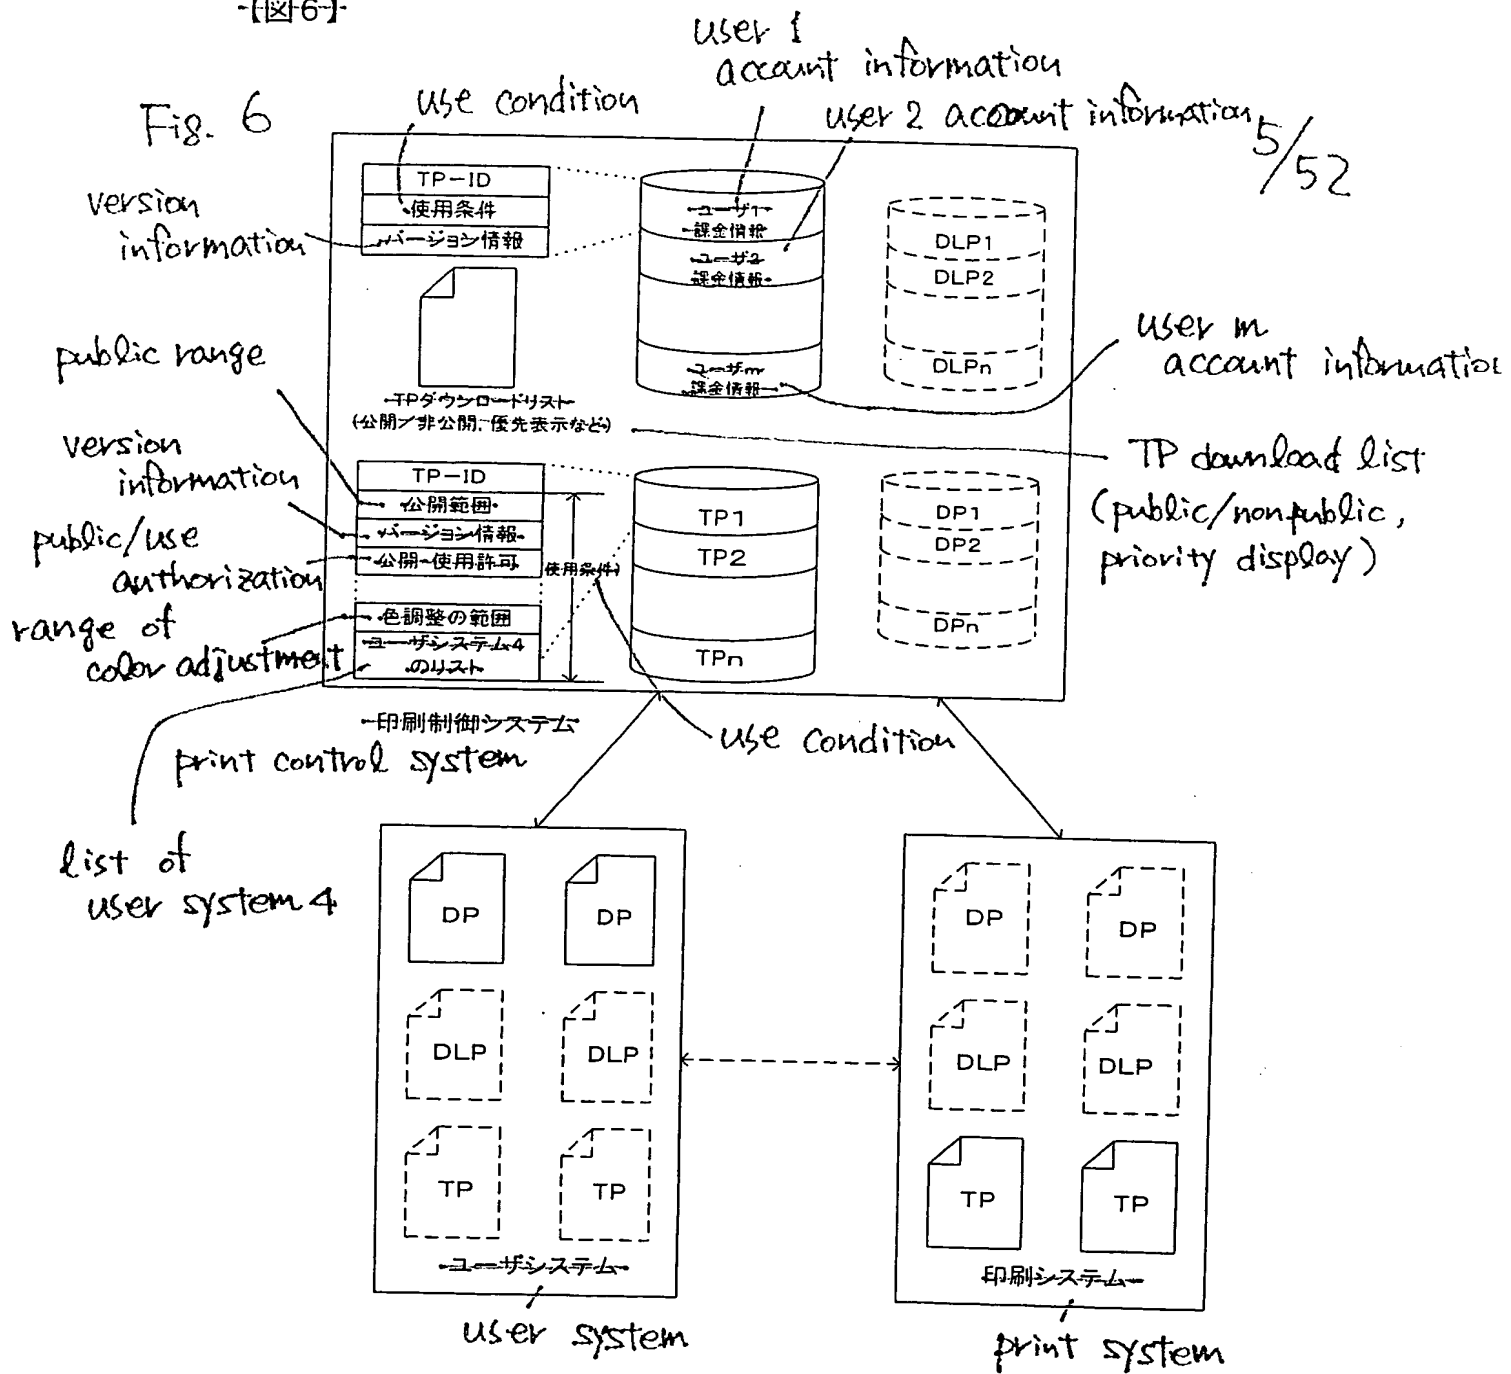 【図6】
Fig. 6
5/52
use condition
user 1
account information
user 2 account information
version
information
TP-ID
使用条件
バージョン情報
ユーザ1
課金情報
ユーザ2
課金情報
ユーザm
課金情報
DLP1
DLP2
DLPn
user m
account information
public range
TPダウンロードリスト
(公開/非公開、優先表示など)
TP download list
(public/nonpublic,
priority display)
version
information
public/use
authorization
range of
color adjustment
TP-ID
公開範囲
バージョン情報
公開・使用許可
色調整の範囲
ユーザシステム4
のリスト
使用条件
TP1
TP2
TPn
DP1
DP2
DPn
印刷制御システム
print control system
use condition
list of
user system 4
DP
DP
DLP
DLP
TP
TP
ユーザシステム
user system
DP
DP
DLP
DLP
TP
TP
印刷システム
print system